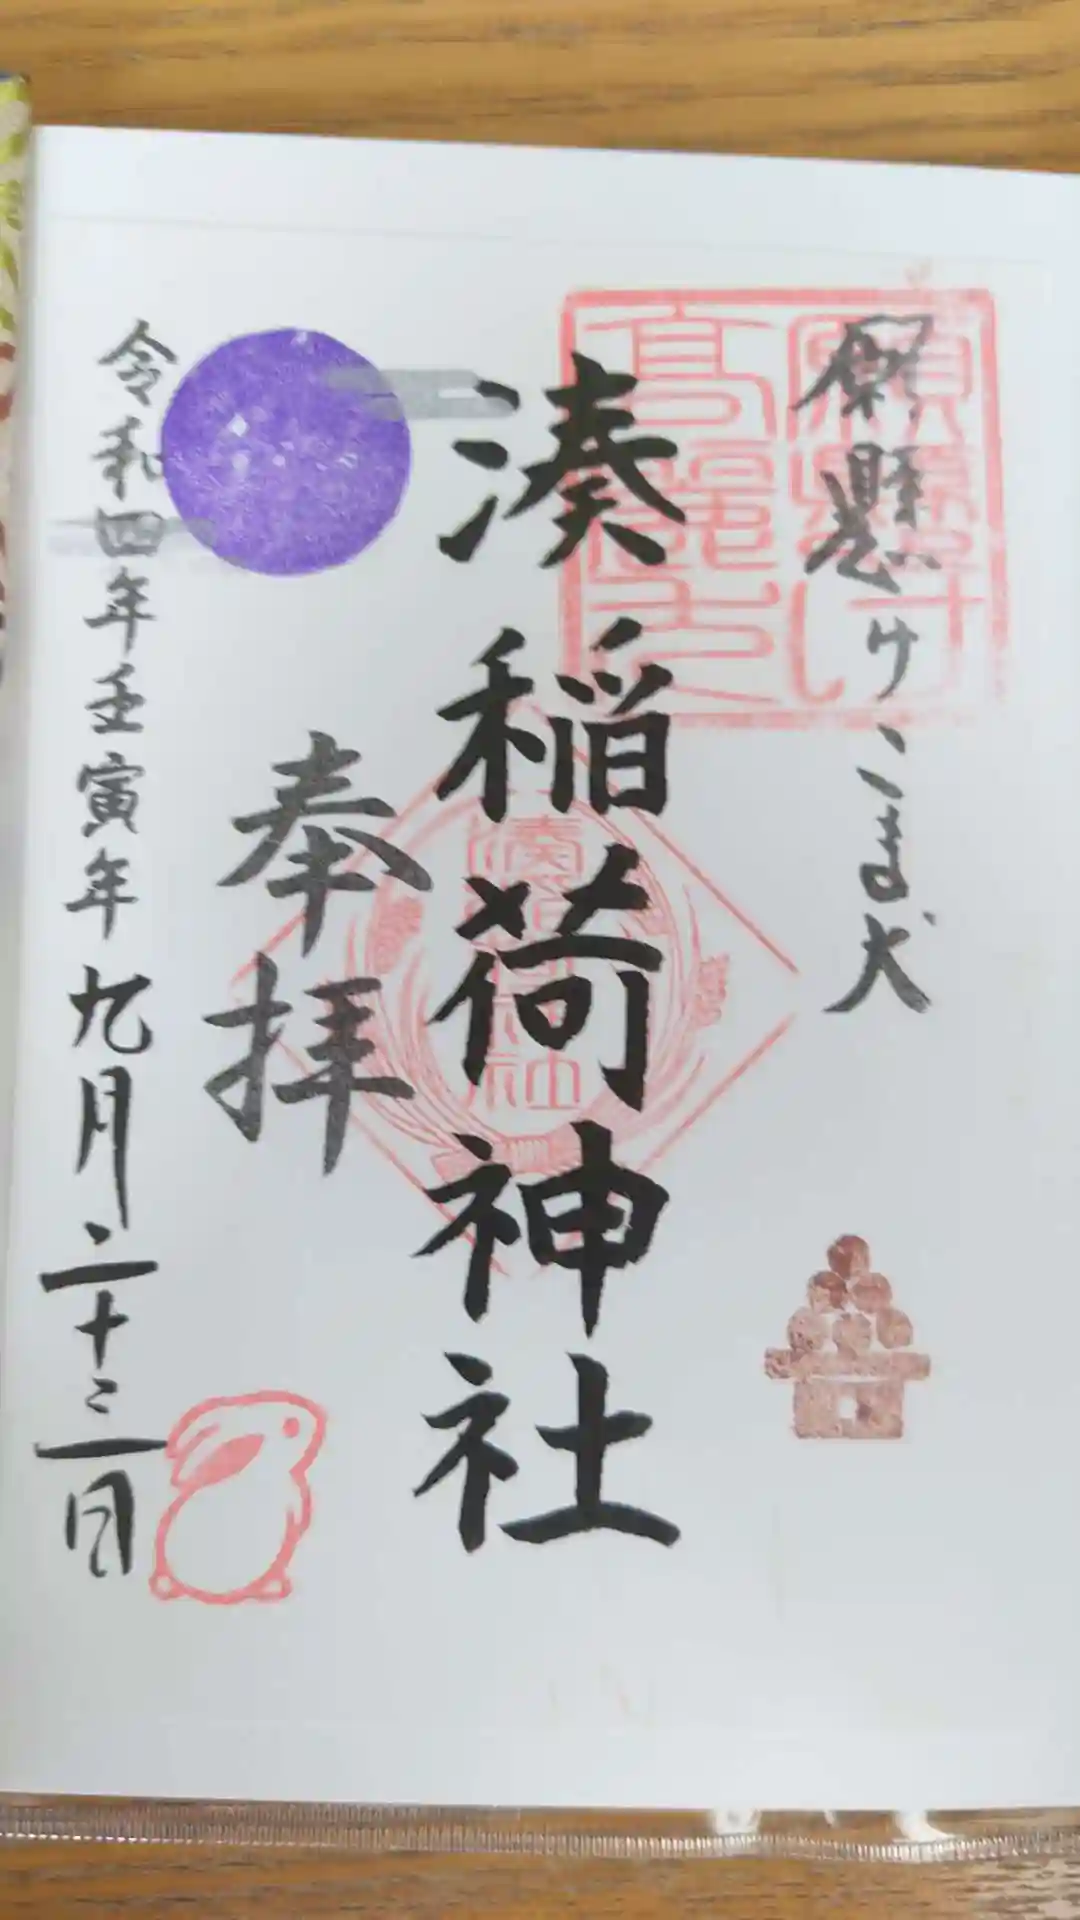 願懸けこま犬
湊稲荷神社
奉拝
令和四年壬寅年九月二十三日